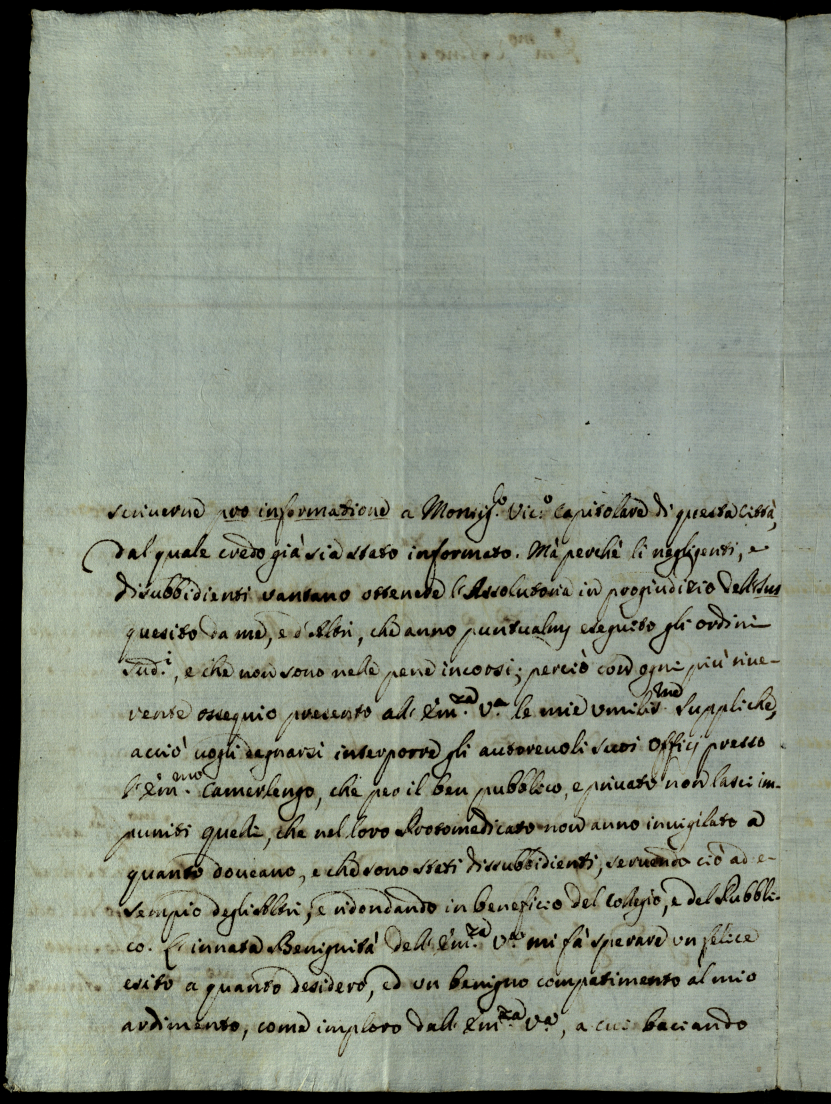 scriverne pro informatione a Monsig.ʳ Vic.º Capitolare di questa Città,
dal quale credo già sia stato informato. Mà perchè li negligenti, e
disubbidienti vantano ottenere l'Assolutoria in progiudizio dell'Ius
quesito da me, e d'Altri, che anno puntualm eseguito gli ordini
sud.ⁱ, e che non sono nelle pene incorsi; perciò con ogni più rive-
rente ossequio presento all' Em.ᶻᵃ Vᵃ le mie umilis.ᵐᵉ Suppliche,
acciò vogli degnarsi interporre gli autorevoli suoi Officij presso
l'Em.ᵐᵒ Camerlengo, che per il ben pubblico, e privato non lasci im-
puniti quelli, che nel loro Protomedicato non anno invigilato a
quanto doveano, e che sono stati dissubbidienti, servendo ciò ad e-
sempio degli Altri, e ridondando in beneficio del Colegio, e del Pubbli-
co. L'innata Benignità dell' Em.ᶻᵃ Vᵃ mi fà sperare un felice
esito a quanto desidero, ed un benigno compatimento al mio
ardimento, come imploro dall' Em.ᶻᵃ Vᵃ, a cui baciando